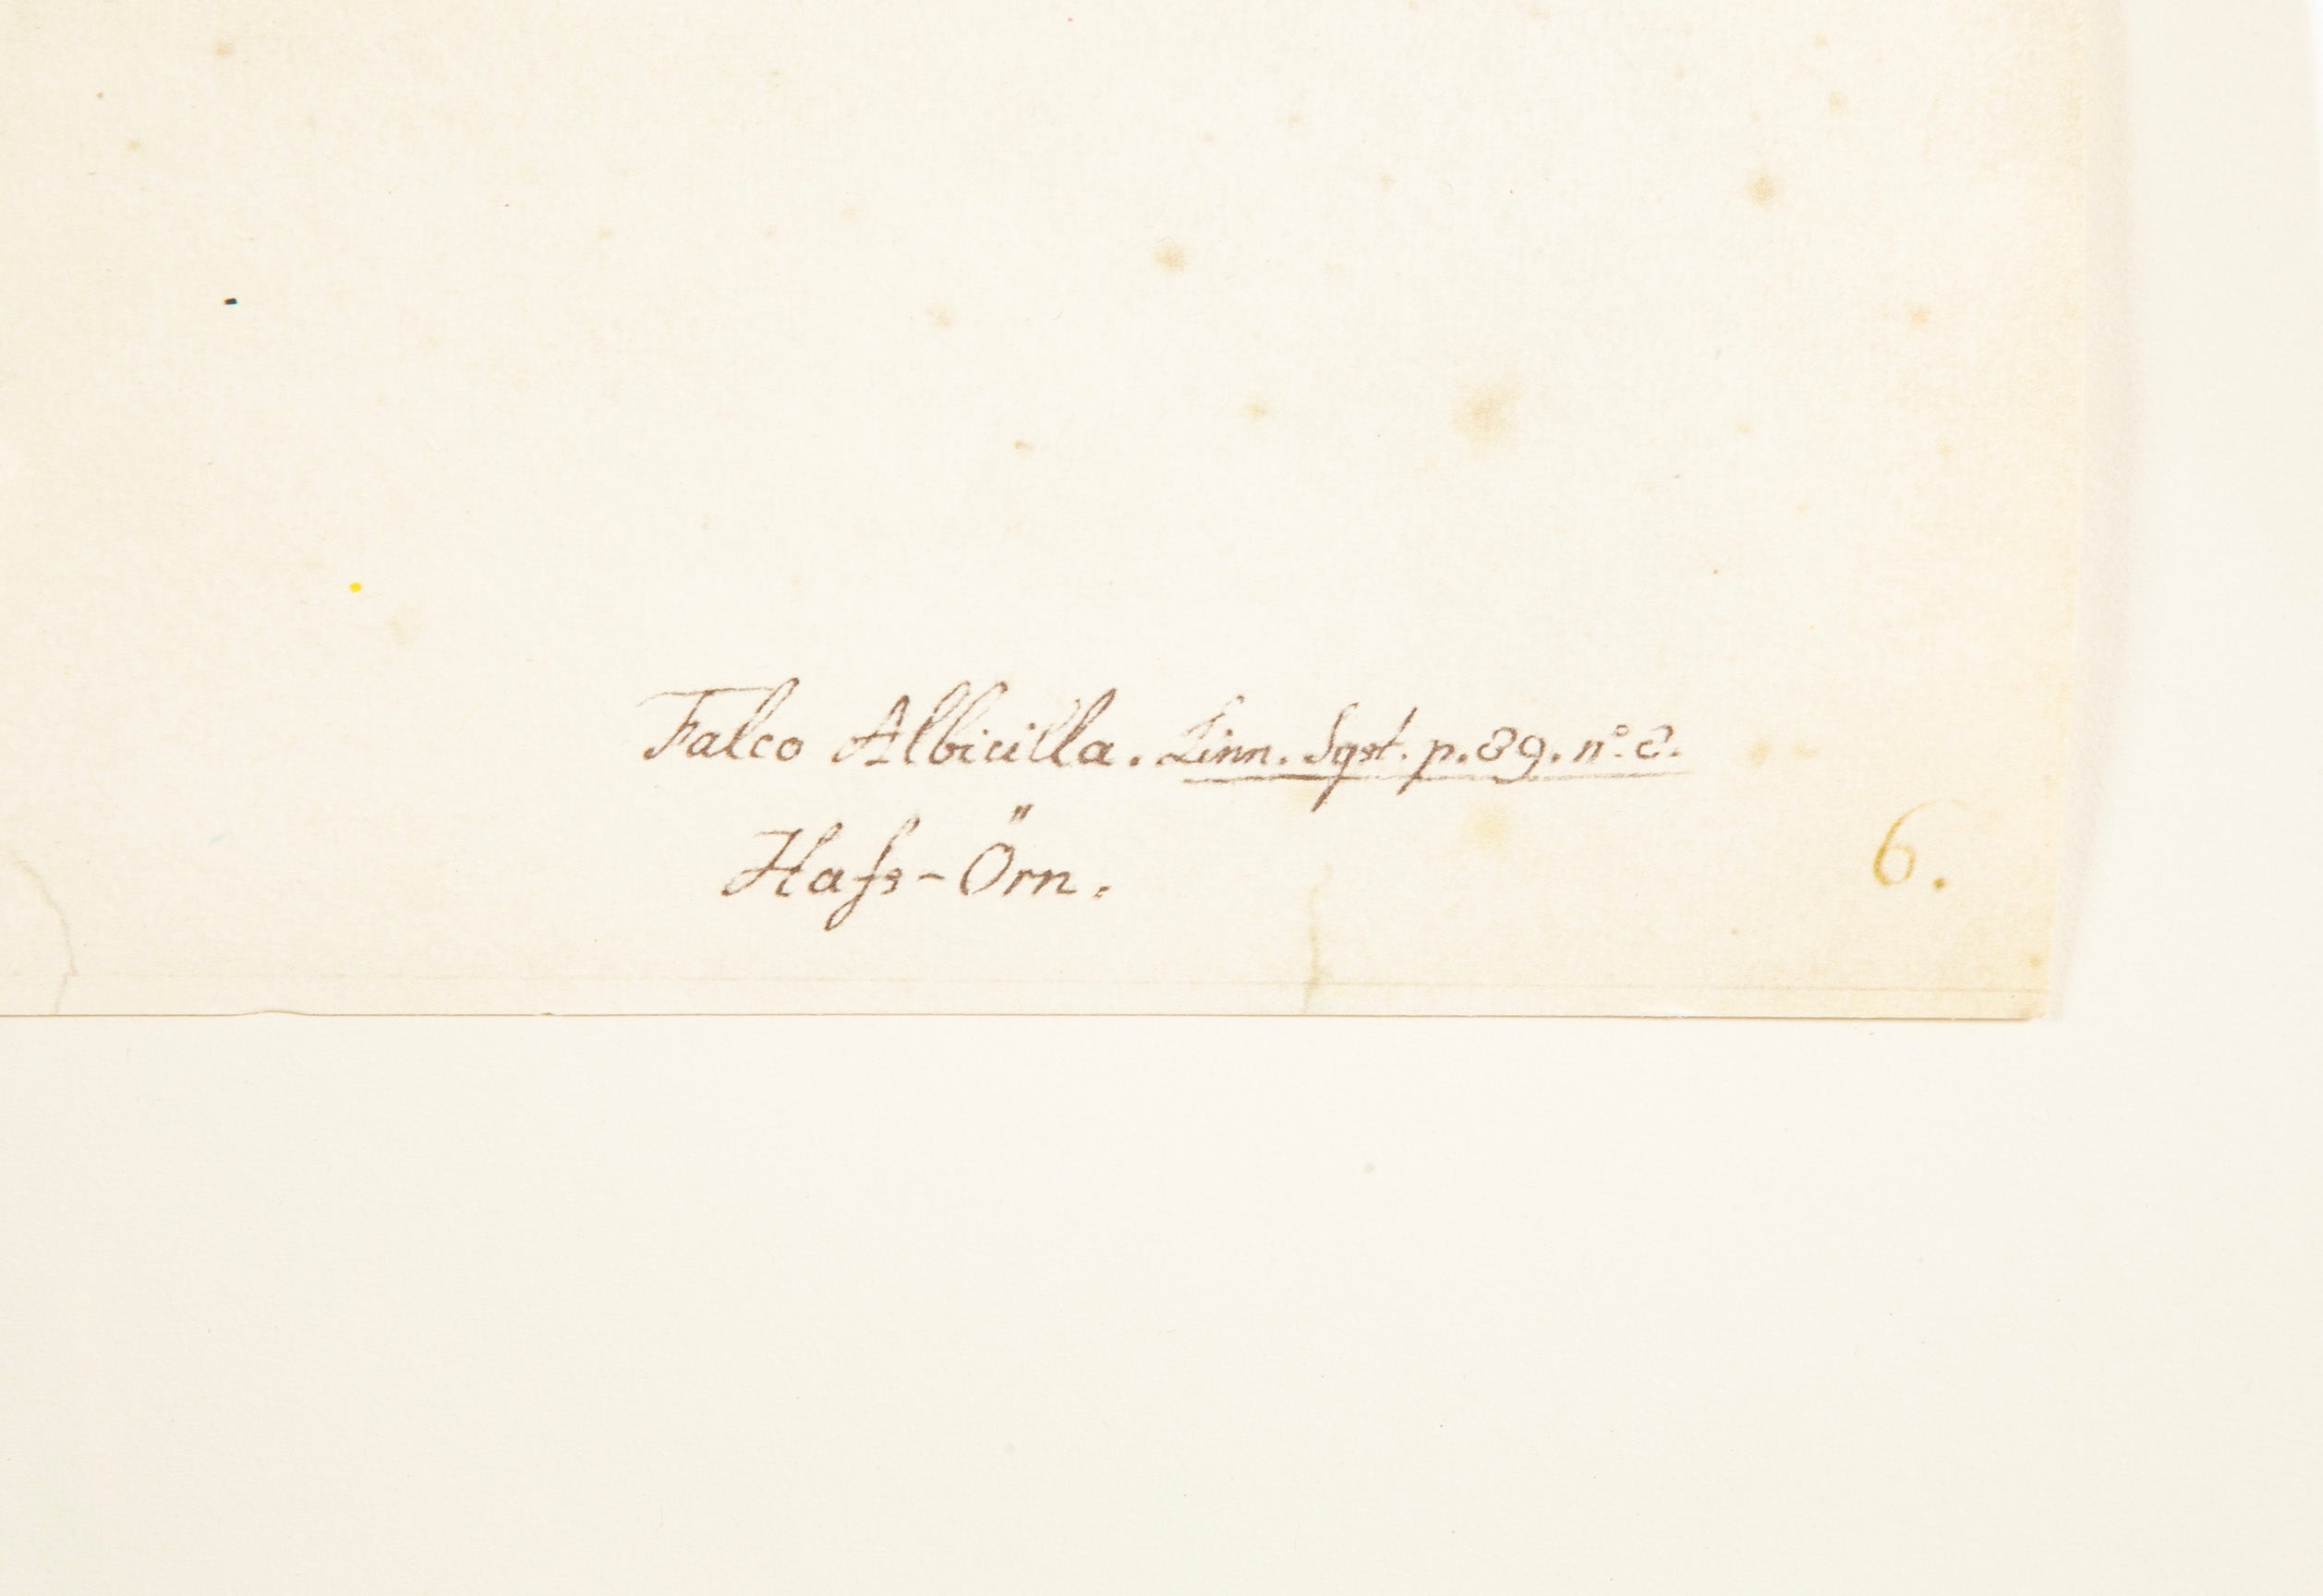 Falco Albicilla. Linn. Syst. p. 89. nº. 8.
Hafs-Örn.
6.